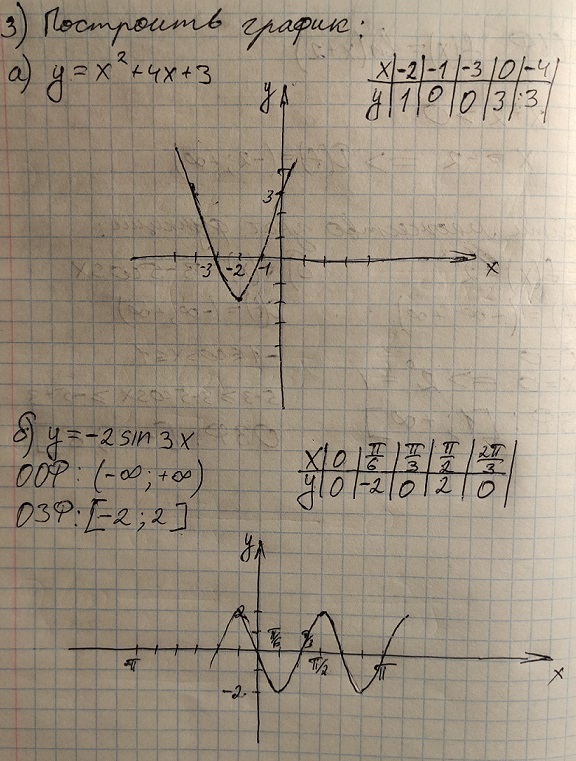 3) Построить график:
а) y = x² + 4x + 3
x | -2 | -1 | -3 | 0 | -4 |
y | 1 | 0 | 0 | 3 | 3 |
y
3
-3 -2 -1
x
б) y = -2 sin 3x
ООФ: (-∞; +∞)
ОЗФ: [-2; 2]
x | 0 | π/6 | π/3 | π/2 | 2π/3 |
y | 0 | -2 | 0 | 2 | 0 |
y
2
π/6 π/3
π π/2 π
x
-2